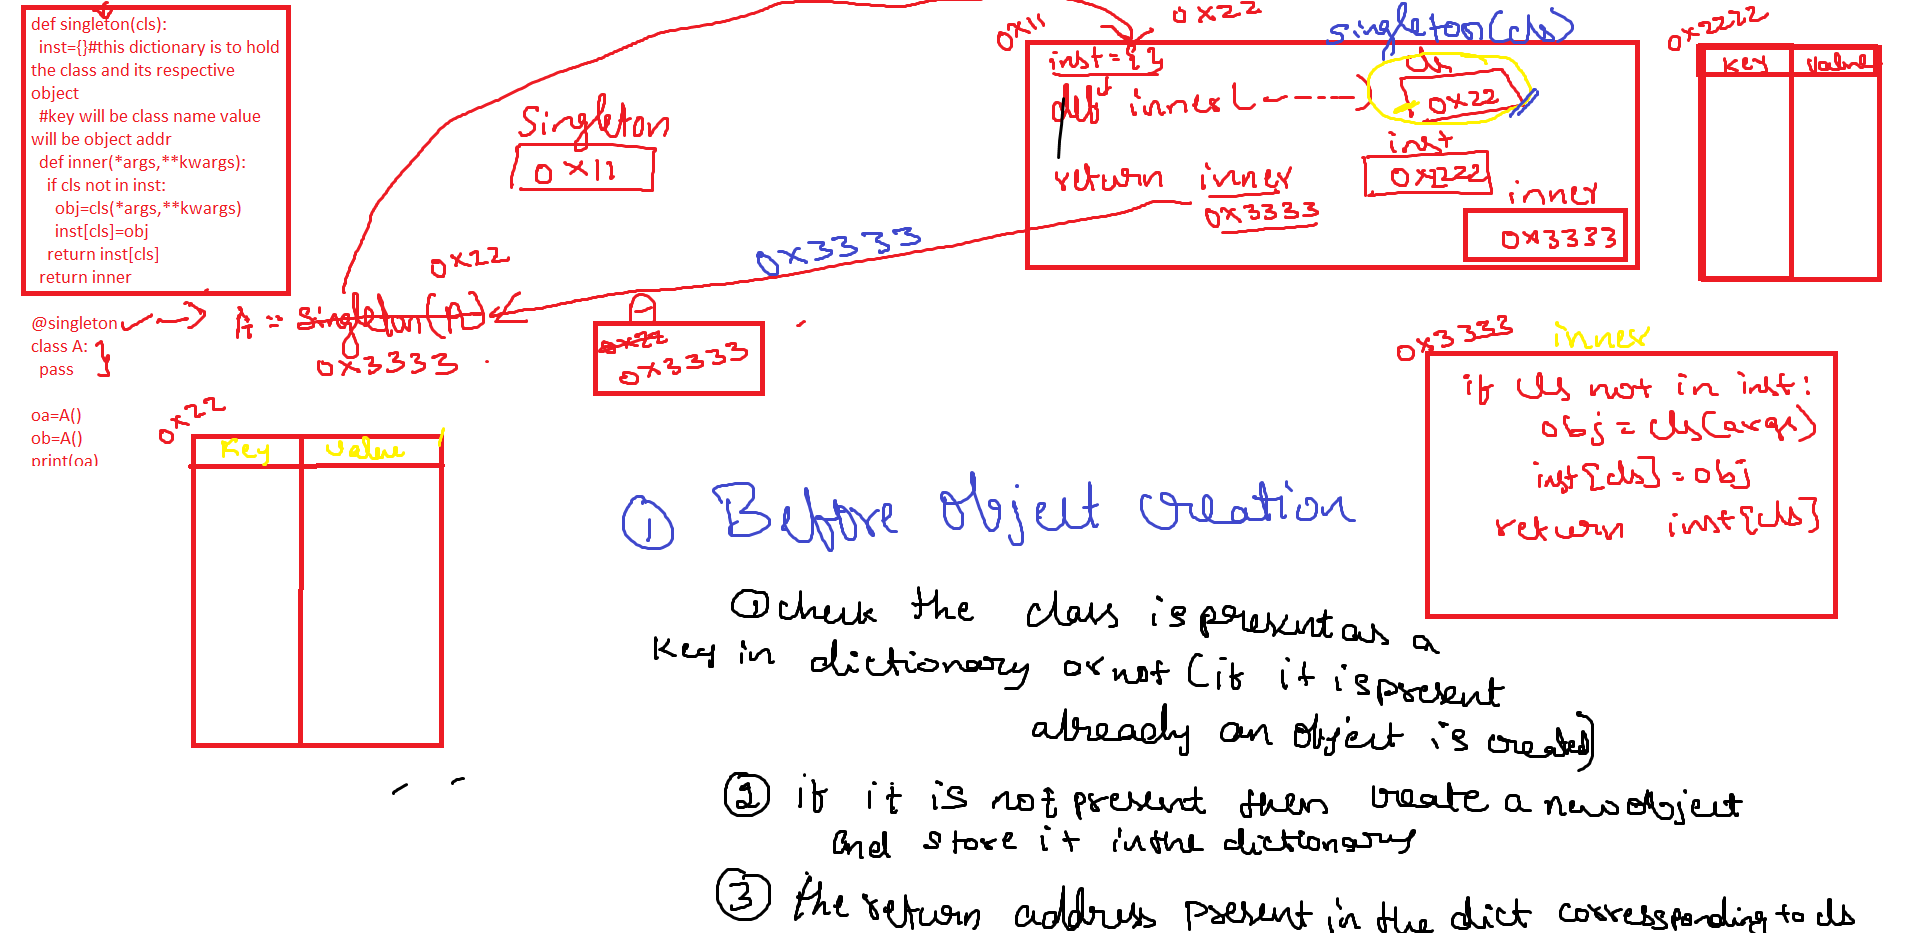 def singleton(cls):
inst={}#this dictionary is to hold
the class and its respective
object
#key will be class name value
will be object addr
def inner(*args,**kwargs):
if cls not in inst:
obj=cls(*args,**kwargs)
inst[cls]=obj
return inst[cls]
return inner
@singleton
class A:
pass
oa=A()
ob=A()
print(oa)
Singleton
0x11
0x22
A = singleton(A)
0x3333
0x3333
A
0x22
0x3333
0x22
Key value
0x11
0x22
singleton(cls)
inst={}
def inner(
return inner
0x3333
cls
0x22
inst
0x2222
inner
0x3333
0x2222
Key value
0x3333 inner
if cls not in inst:
obj = cls(args)
inst[cls] = obj
return inst[cls]
① Before object creation
① check the class is present as a
key in dictionary or not (if it is present
already an object is created)
② if it is not present then create a new object
and store it in the dictionary
③ the return address present in the dict corresponding to cls